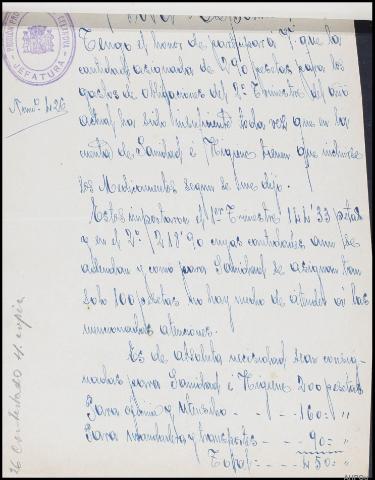 JEFATURA
Num. 426
Tengo el honor de participar a V. que la
cantidad asignada de 290 pesetas para los
gastos de obligaciones del 2º Trimestre del año
actual ha sido insuficiente toda vez que en la
cuenta de Sanidad é Higiene tienen que incluirse
los Medicamentos segun se me dijo.
Estos importaron el 1er Trimestre 144'33 pesetas
y en el 2º, 218'90 cuyas cantidades aun se
adeudan y como para Sanidad se asignan tan
solo 100 pesetas no hay medio de atender á las
mencionadas atenciones.
Es de absoluta necesidad sean consig-
nadas para Sanidad é Higiene 200 pesetas
Para oficina y utensilio - - - 160= "
Para and transportes - - - 90= "
Total= - - - 450= "
26 Contestado